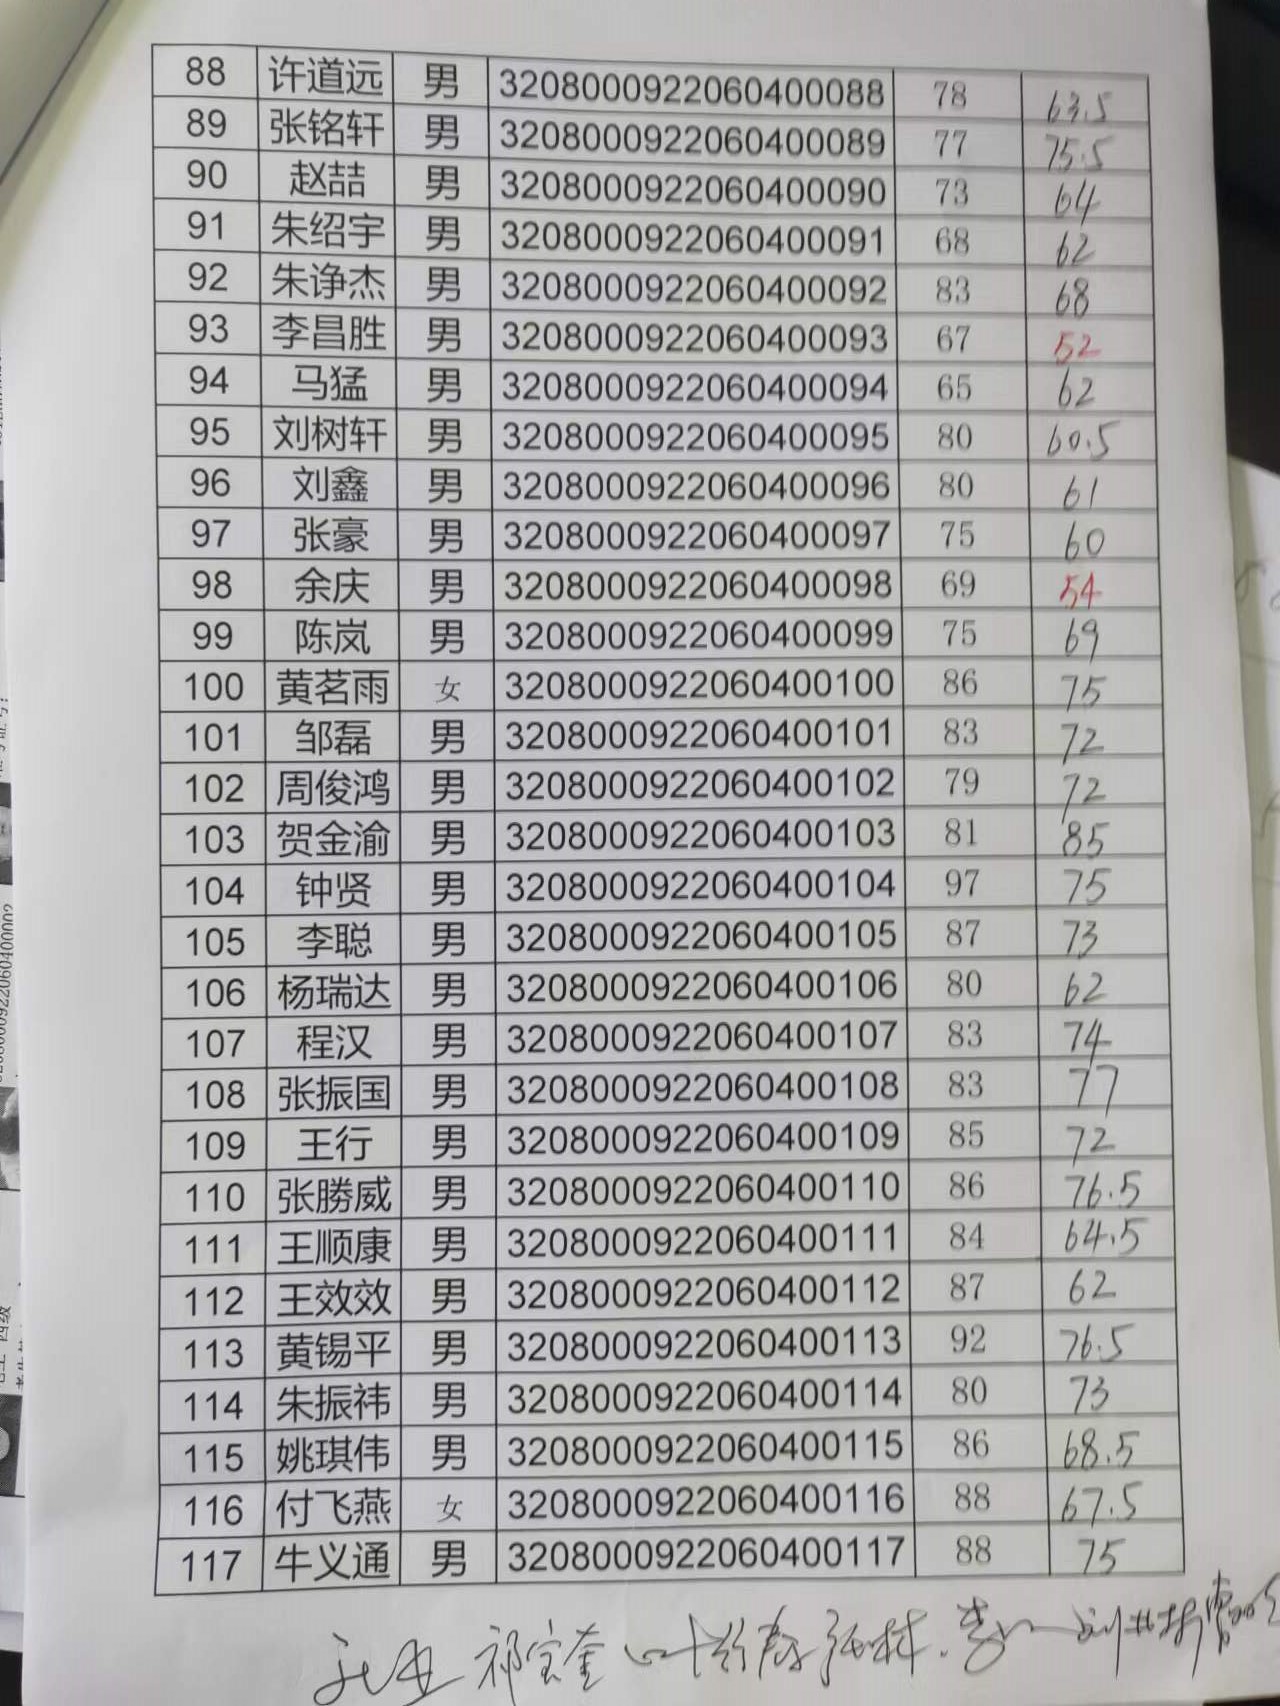 88 许道远 男 3208000922060400088 78 63.5
89 张铭轩 男 3208000922060400089 77 75.5
90 赵喆 男 3208000922060400090 73 64
91 朱绍宇 男 3208000922060400091 68 62
92 朱诤杰 男 3208000922060400092 83 68
93 李昌胜 男 3208000922060400093 67 52
94 马猛 男 3208000922060400094 65 62
95 刘树轩 男 3208000922060400095 80 60.5
96 刘鑫 男 3208000922060400096 80 61
97 张豪 男 3208000922060400097 75 60
98 余庆 男 3208000922060400098 69 54
99 陈岚 男 3208000922060400099 75 69
100 黄茗雨 女 3208000922060400100 86 75
101 邹磊 男 3208000922060400101 83 72
102 周俊鸿 男 3208000922060400102 79 72
103 贺金渝 男 3208000922060400103 81 85
104 钟贤 男 3208000922060400104 97 75
105 李聪 男 3208000922060400105 87 73
106 杨瑞达 男 3208000922060400106 80 62
107 程汉 男 3208000922060400107 83 74
108 张振国 男 3208000922060400108 83 77
109 王行 男 3208000922060400109 85 72
110 张勝威 男 3208000922060400110 86 76.5
111 王顺康 男 3208000922060400111 84 64.5
112 王效效 男 3208000922060400112 87 62
113 黄锡平 男 3208000922060400113 92 76.5
114 朱振祎 男 3208000922060400114 80 73
115 姚琪伟 男 3208000922060400115 86 68.5
116 付飞燕 女 3208000922060400116 88 67.5
117 牛义通 男 3208000922060400117 88 75
祁宝奎